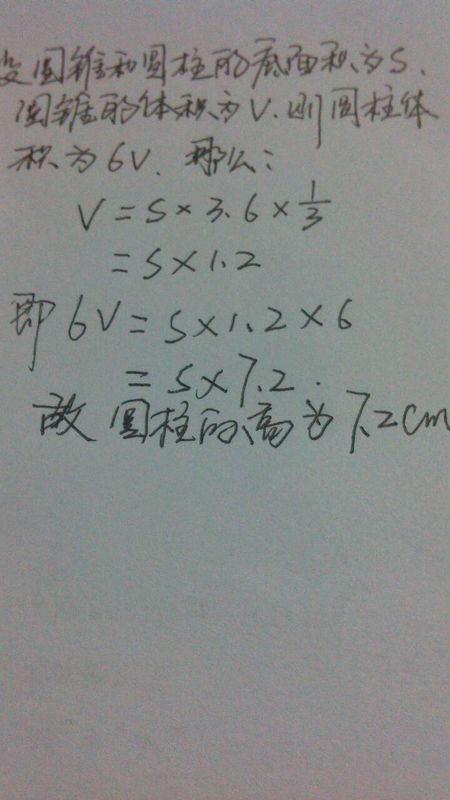 设圆锥和圆柱的底面积为S.
圆锥的体积为V.则圆柱体
积为6V.那么:
V=S×3.6×1/3
=S×1.2
即6V=S×1.2×6
=S×7.2.
故圆柱的高为7.2cm